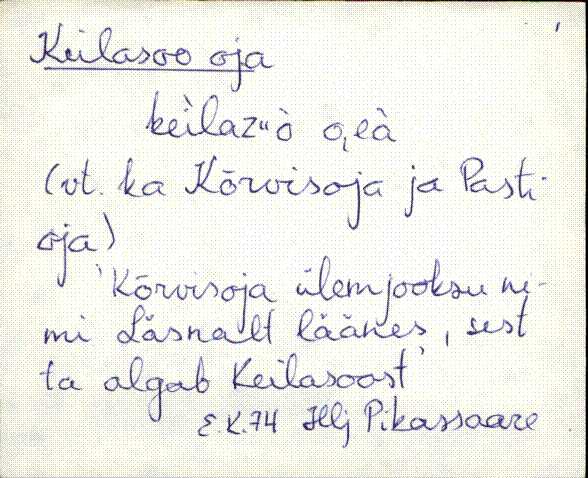 Keilasoo oja
kèilazuò o̭eà
(vt. ka Kõrvisoja ja Pasti-
oja)
'Kõrvisoja ülemjooksu ni-
mi Läsnalt läänes, sest
ta algab Keilasoost'
E.K.74 Hlj Pikassaare